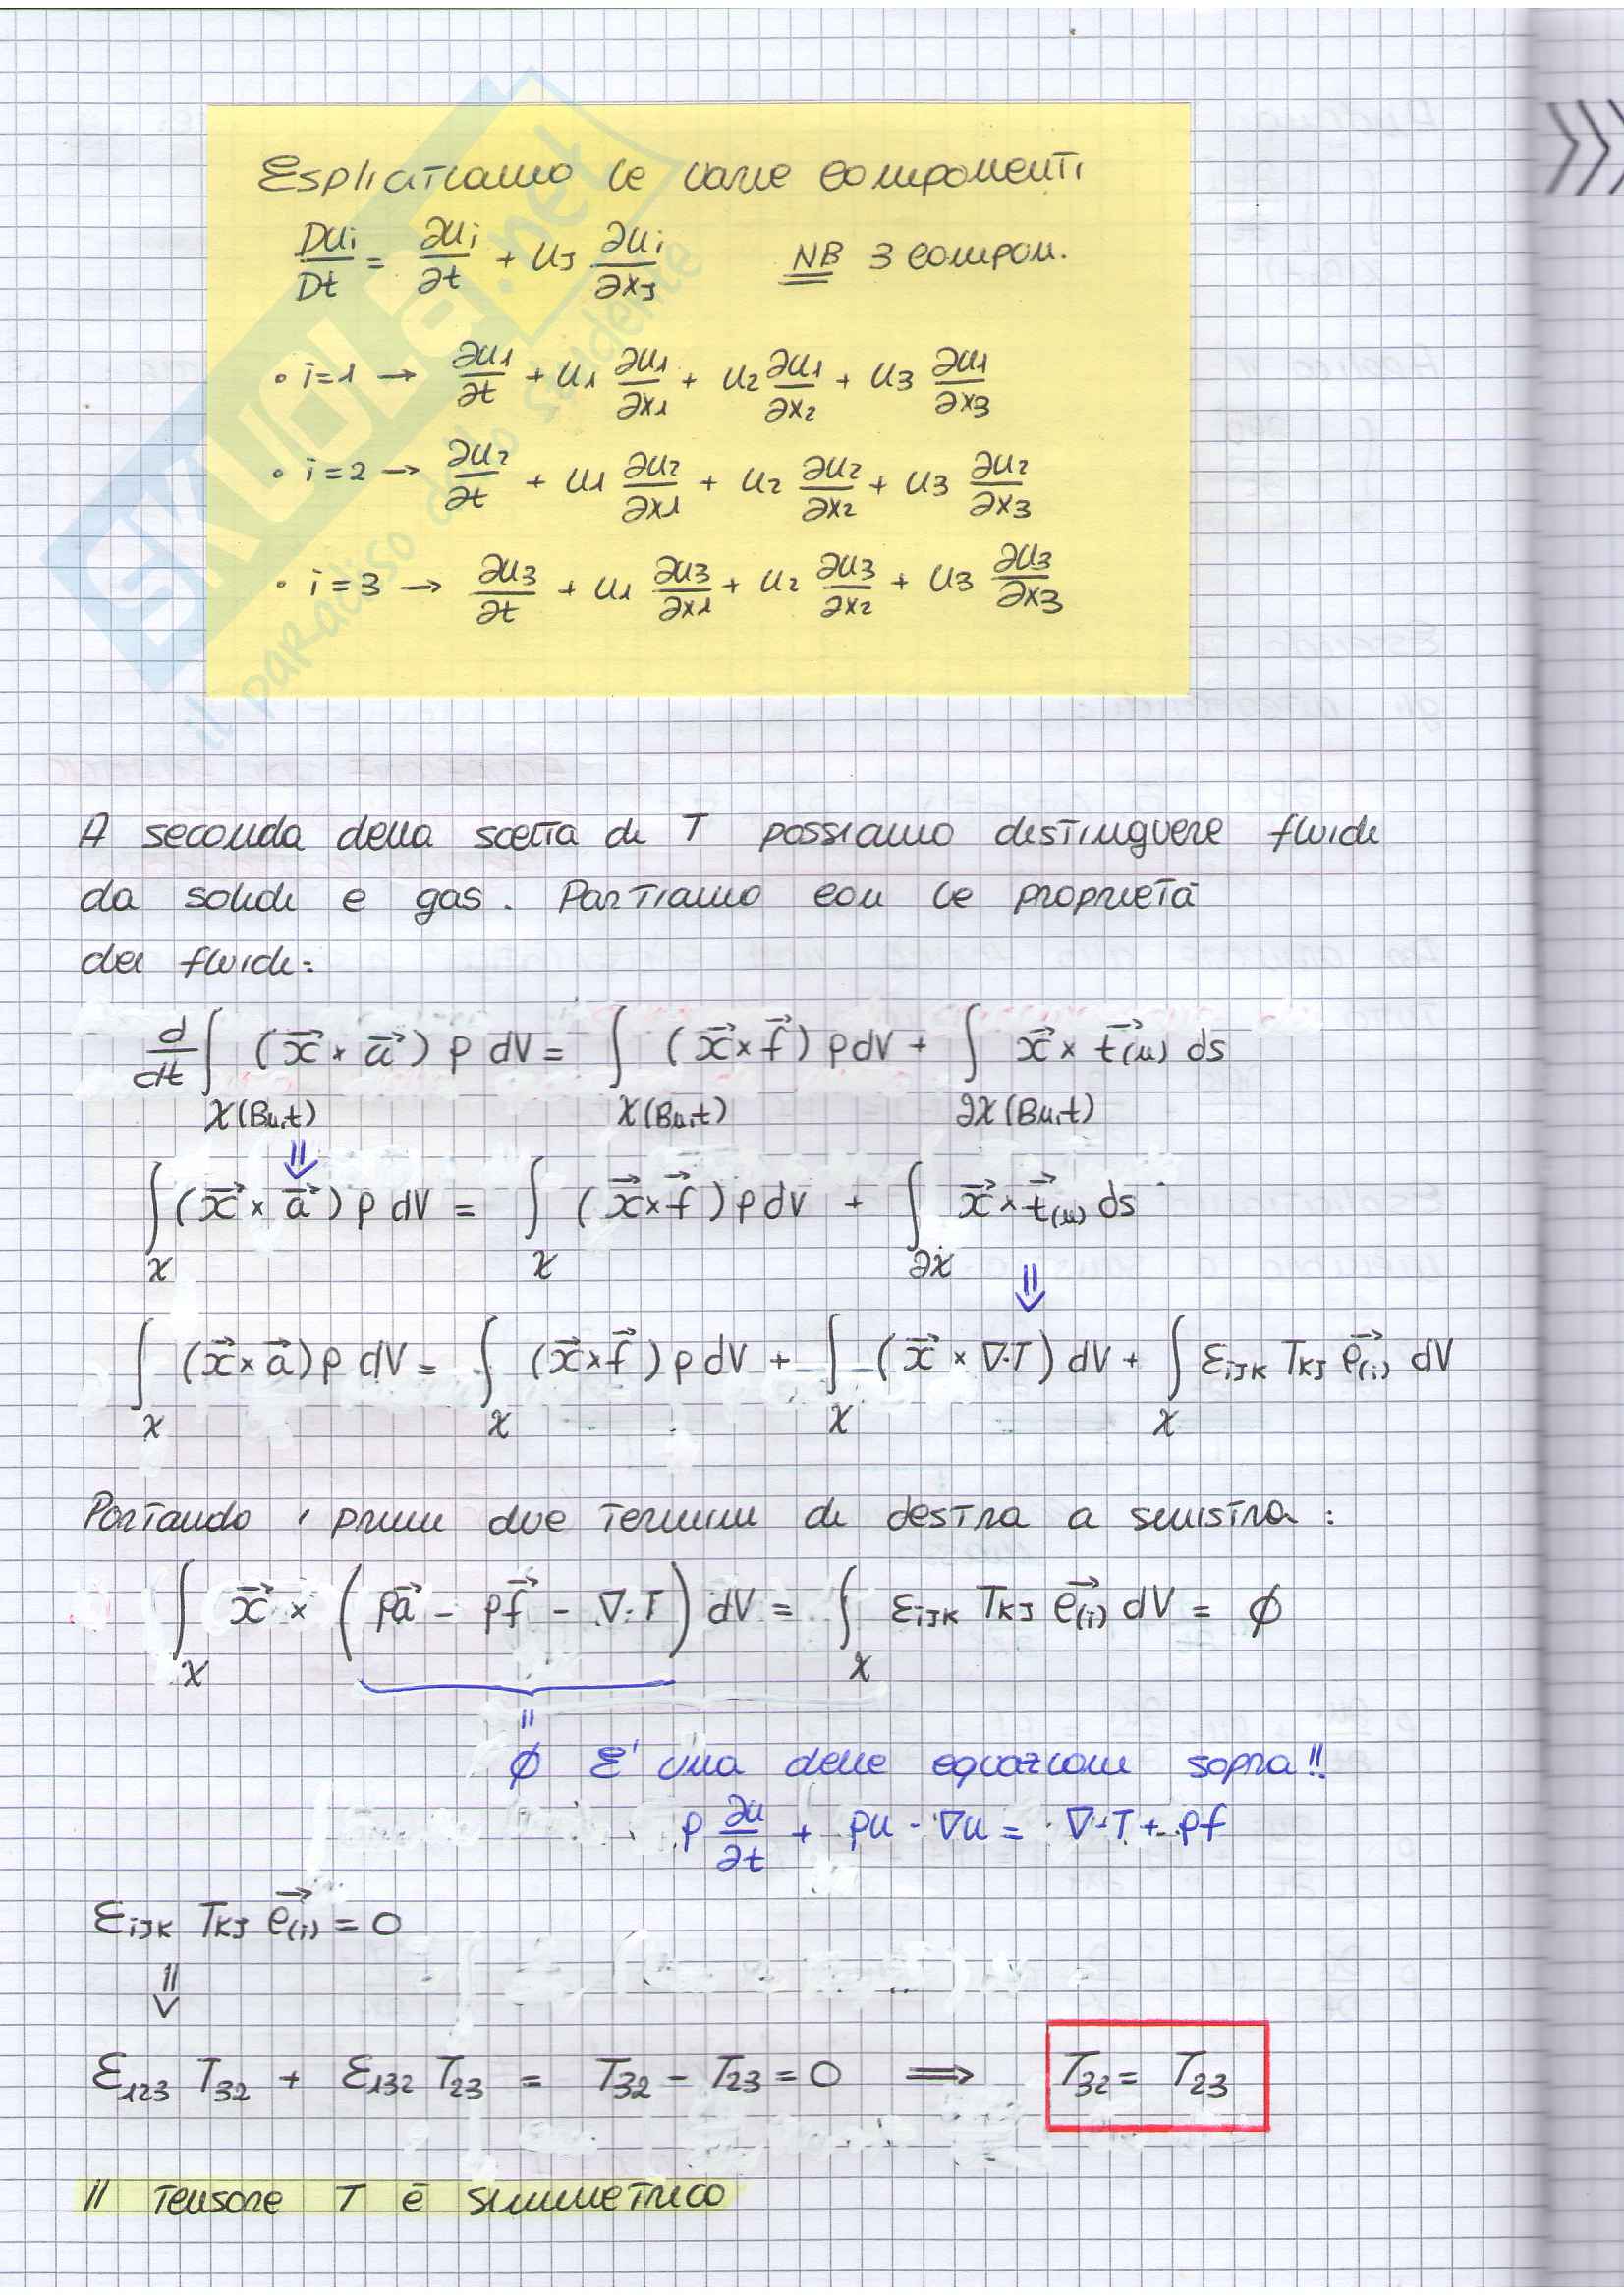 Esplicitiamo le varie componenti
Dui/Dt = ∂ui/∂t + uj ∂ui/∂xj   NB 3 compon.
• i=1 → ∂u1/∂t + u1 ∂u1/∂x1 + u2 ∂u1/∂x2 + u3 ∂u1/∂x3
• i=2 → ∂u2/∂t + u1 ∂u2/∂x1 + u2 ∂u2/∂x2 + u3 ∂u2/∂x3
• i=3 → ∂u3/∂t + u1 ∂u3/∂x1 + u2 ∂u3/∂x2 + u3 ∂u3/∂x3
SKUOLa.net
il paradiso dello studente
A seconda della scelta di T possiamo distinguere fluidi
da solidi e gas. Partiamo con le proprietà
dei fluidi:
d/dt ∫χ(Bu,t) (x⃗ × a⃗) ρ dV = ∫χ(Bu,t) (x⃗ × f⃗) ρ dV + ∫∂χ(Bu,t) x⃗ × t⃗(u) ds
⇓
∫χ (x⃗ × a⃗) ρ dV = ∫χ (x⃗ × f⃗) ρ dV + ∫∂χ x⃗ × t⃗(u) ds
⇓
∫χ (x⃗ × a⃗) ρ dV = ∫χ (x⃗ × f⃗) ρ dV + ∫χ (x⃗ × ∇·T) dV + ∫χ εijk Tkj e⃗(i) dV
Portando i primi due termini di destra a sinistra:
∫χ x⃗ × (ρa⃗ - ρf⃗ - ∇·T) dV = ∫χ εijk Tkj e⃗(i) dV = ∅
=
∅ E' una delle equazioni sopra!!
ρ ∂u/∂t + ρu · ∇u = ∇·T + ρf
εijk Tkj e⃗(i) = 0
⇓
ε123 T32 + ε132 T23 = T32 - T23 = 0 ⟹ T32 = T23
Il tensore T è simmetrico